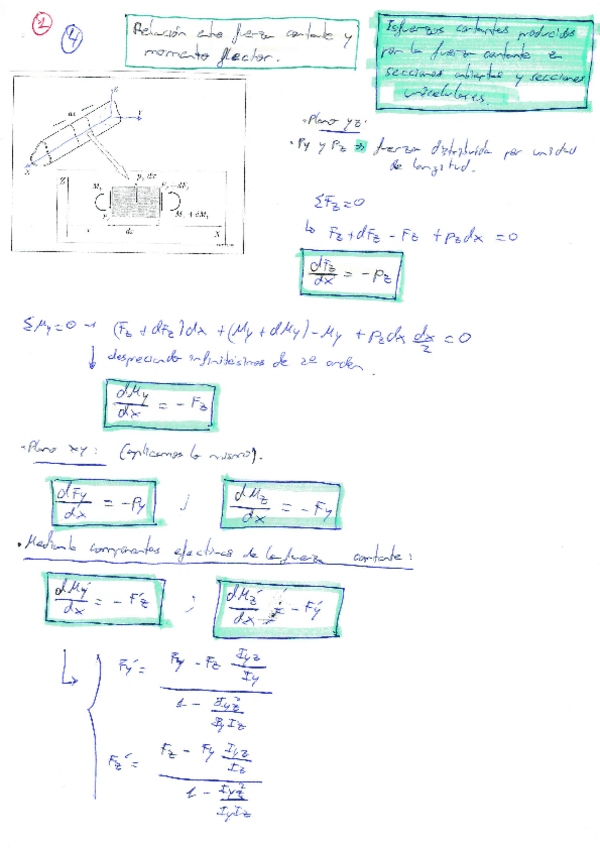 ② ④
Relación entre fuerza cortante y
momento flector.
Esfuerzos cortantes producidos
por la fuerza cortante en
secciones abiertas y secciones
unicelulares.
• Plano yz:
• Py y Pz ⇒ fuerza distribuida por unidad
de longitud.
ΣFz=0
↳ Fz + dFz - Fz + pz dx = 0
dFz/dx = -pz
ΣMy=0 → (Fz + dFz)dx + (My + dMy) - My + pz dx dx/2 = 0
↓ despreciando infinitésimos de 2º orden.
dMy/dx = - Fz
• Plano xy: (aplicamos lo mismo).
dFy/dx = -Py ; dMz/dx = - Fy
• Mediante componentes efectivas de la fuerza cortante:
dMy'/dx = - F'z ; dMz'/dx = - Fy'
Fy' = (Fy - Fz Iyz/Iy) / (1 - Iyz²/IyIz)
Fz' = (Fz - Fy Iyz/Iz) / (1 - Iyz²/IyIz)